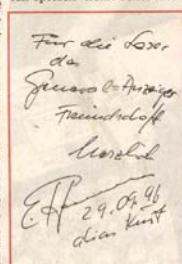 Für die Leser
des
General-Anzeiger
Freundschaft
herzlich
29.04.96
alias Kurt